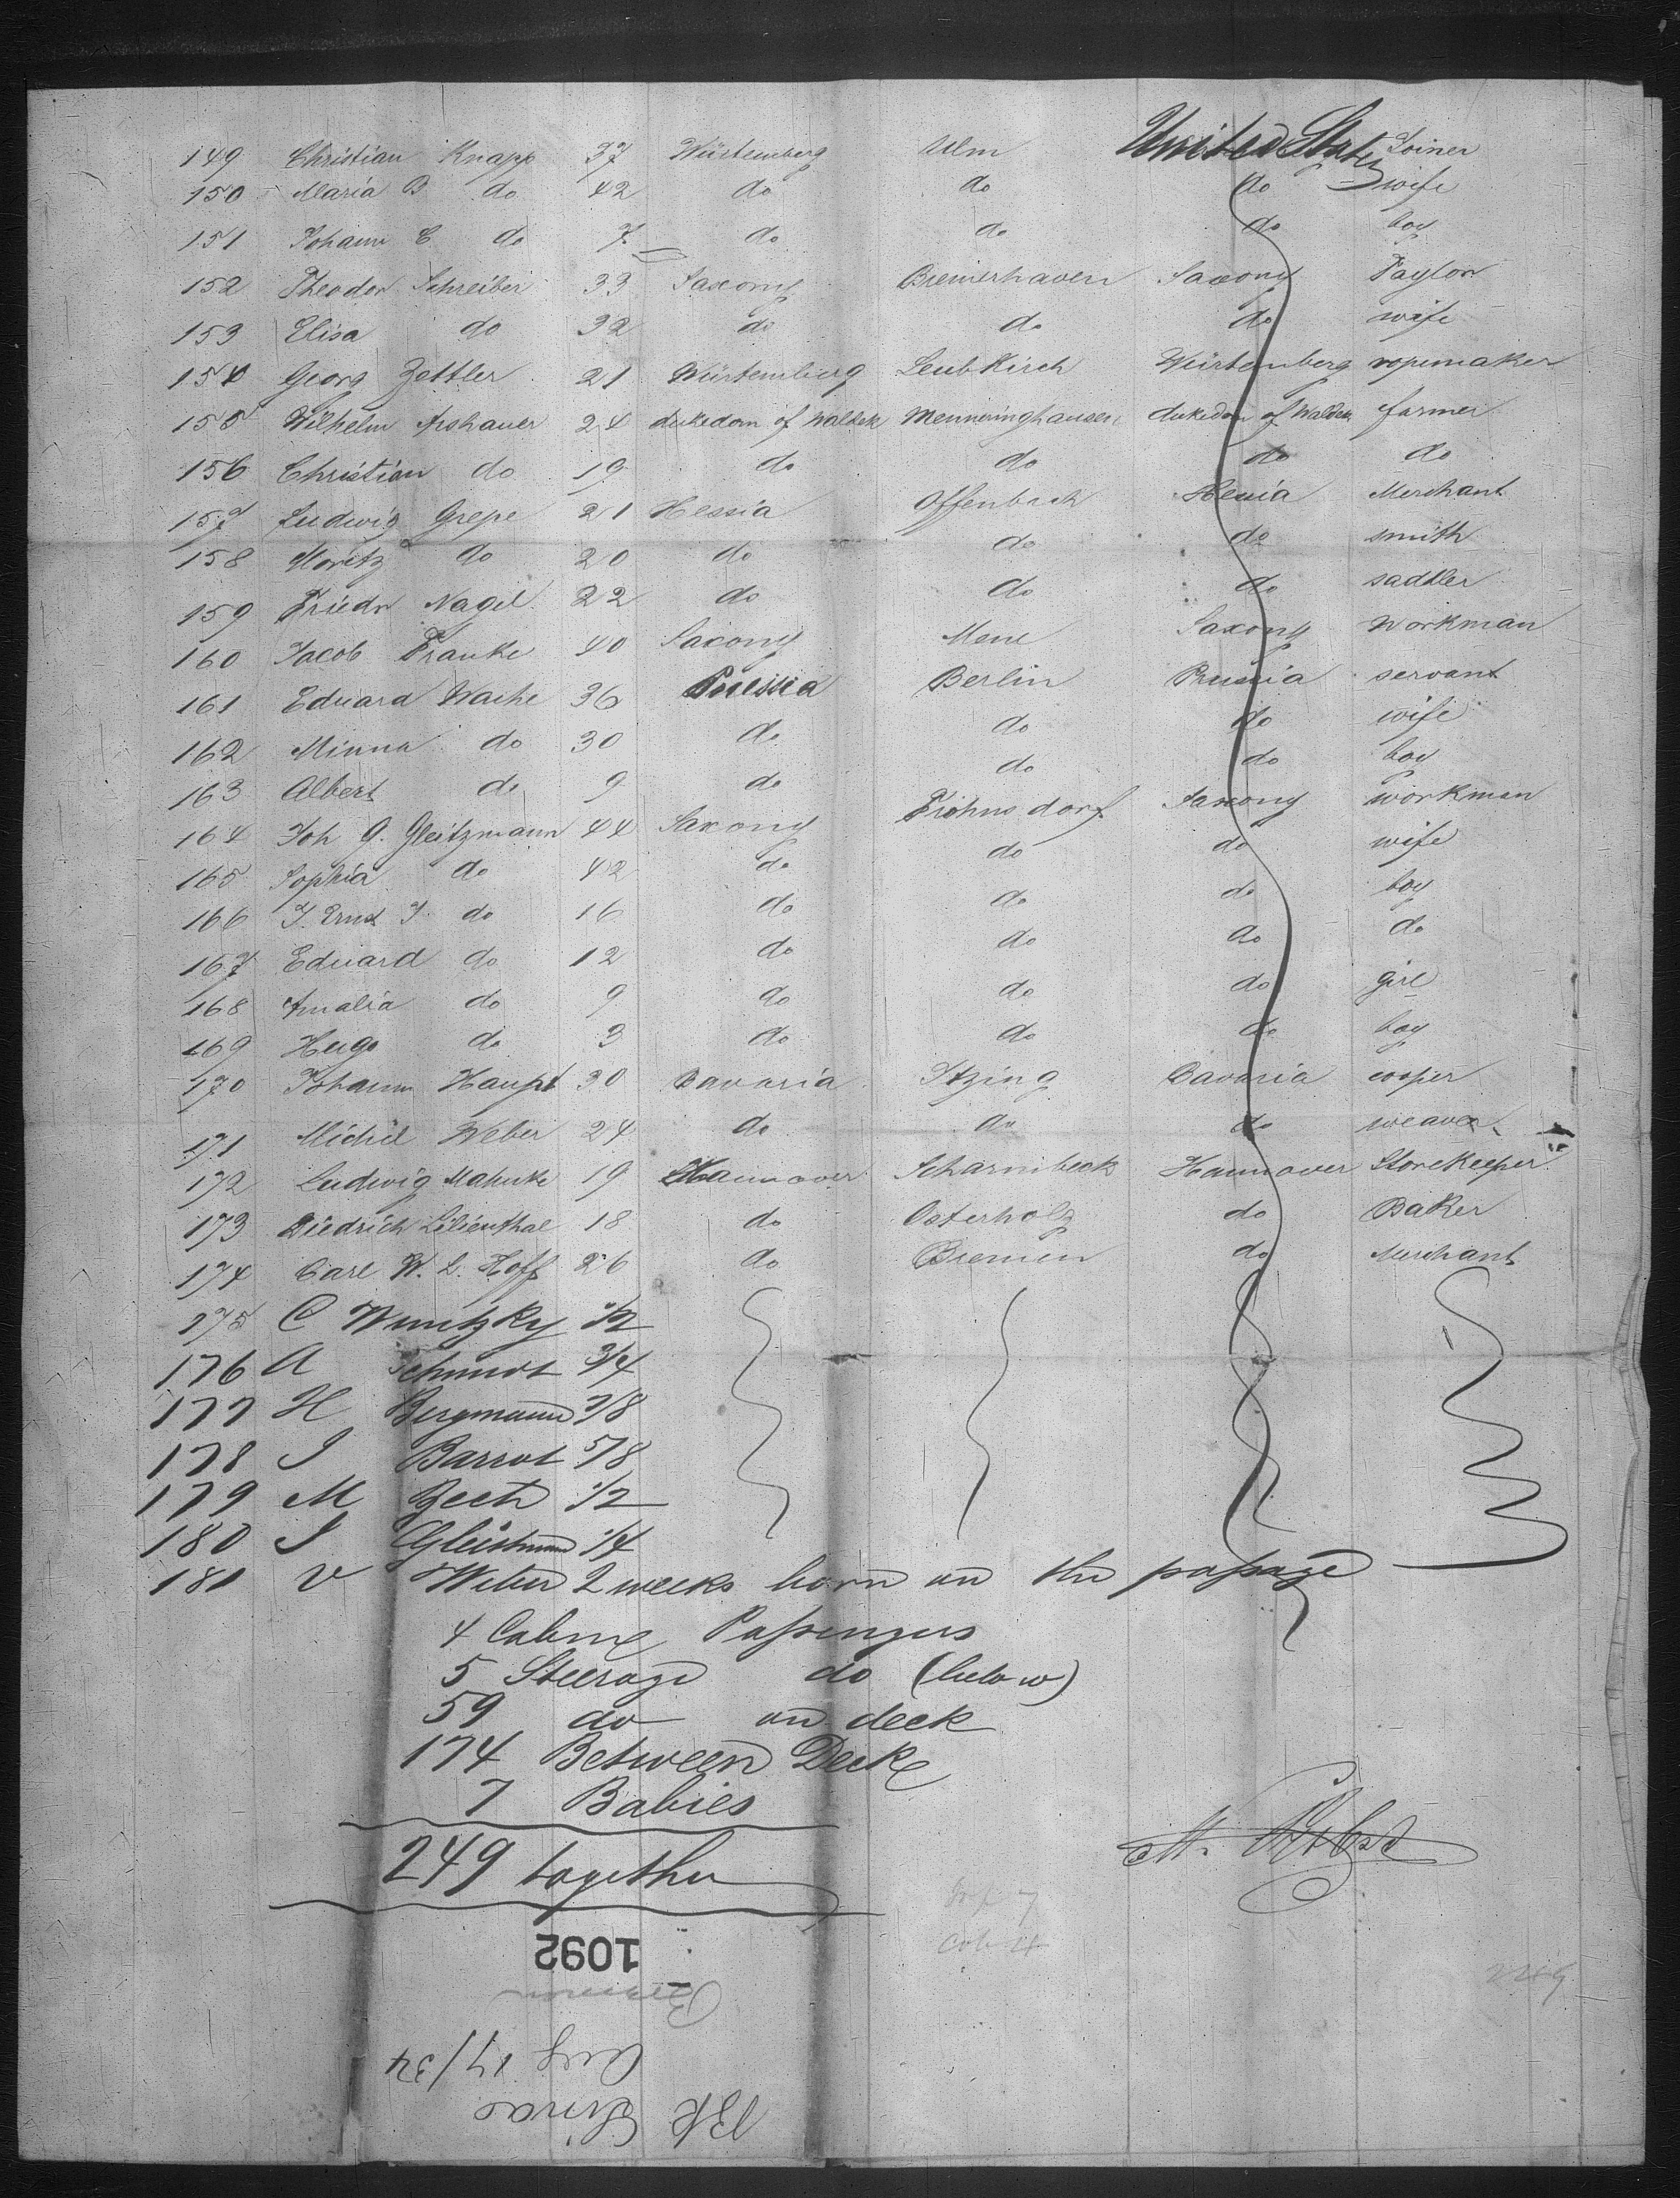 149 Christian Knapp 37 Würtemberg Ulm United States Joiner
150 Maria B do 42 do do do wife
151 Johann C. do 7 do do do boy
152 Theodor Schreiber 33 Saxony Bremerhaven Saxony Taylor
153 Elisa do 32 do do do wife
154 Georg Zettler 21 Würtemberg Leubkirch Würtemberg ropemaker
155 Wilhelm 24 dukedom of Waldek Menneringhausen dukedom of Waldek farmer
156 Christian do 19 do do do do
157 Ludwig Grepe 21 Hessia Offenbach Hessia Merchant
158 Moritz do 20 do do do smith
159 Friedr Nagel 22 do do do sadtler
160 Jacob Franke 40 Saxony Saxony Workman
161 Eduard Wache 36 Prussia Berlin Prussia servant
162 Minna do 30 do do do wife
163 Albert do 9 do do do boy
164 Joh G. Gleitzmann 44 Saxony Frohnsdorf Saxony workman
165 Sophia do 42 do do do wife
166 J. Ernst J. do 16 do do do boy
167 Eduard do 12 do do do do
168 Amalia do 9 do do do girl
169 Hugo do 3 do do do boy
170 Johann Haupt 30 Bavaria Itzing Bavaria cooper
171 Michel Weber 24 do do do weaver
172 Ludwig Mahnke 19 Hannover Scharmbeck Hannover Storekeeper
173 Diedrich Lilienthal 18 do Osterholz do Baker
174 Carl W. L. Hoff 26 do Bremen do Merchant
175 C 1/2
176 A Schmidt 3/4
177 H Bergmann 7/8
178 J Barrot 5/8
179 M Zech 1/2
180 J 1/4
181 V Weber 2 weeks born on the passage
4 Cabine Passengers
5 Steerage do (below)
59 do on deck
174 Between Deck
7 Babies
249 together
1092
Bremen
Aug 17/54
Bk
249